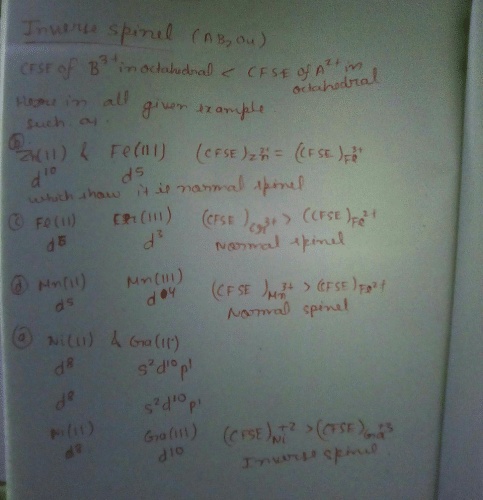 Inverse spinel (AB2O4)
CFSE of B3+ in octahedral < CFSE of A2+ in
octahedral
Here in all given example
such as
(b)
Zn(II) & Fe(III) (CFSE)Zn2+ = (CFSE)Fe3+
d10 d5
which show it is normal spinel
(c) Fe(II) Cr(III) (CFSE)Cr3+ > (CFSE)Fe2+
d6 d3 Normal spinel
(d) Mn(II) Mn(III) (CFSE)Mn3+ > (CFSE)Fe2+
d5 d4 Normal spinel
(a) Ni(II) & Ga(II)
d8 s2d10p1
d8 s2d10p1
Ni(II) Ga(III) (CFSE)Ni+2 > (CFSE)Ga+3
d8 d10 Inverse spinel